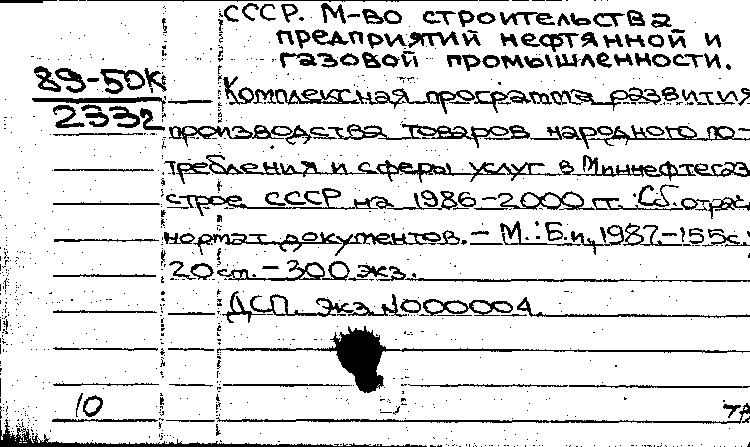 СССР. М-во строительства
предприятий нефтянной и
газовой промышленности.
89-50к
2332
Комплексная программа развития
производства товаров народного по-
требления и сферы услуг в Миннефтегаз
строе СССР на 1986-2000 гг. : Сб. отрас.
нормат. документов. - М.: Б.и., 1987. - 155с.;
20 см. - 300 экз.
ДСП. Экз. №000004.
10